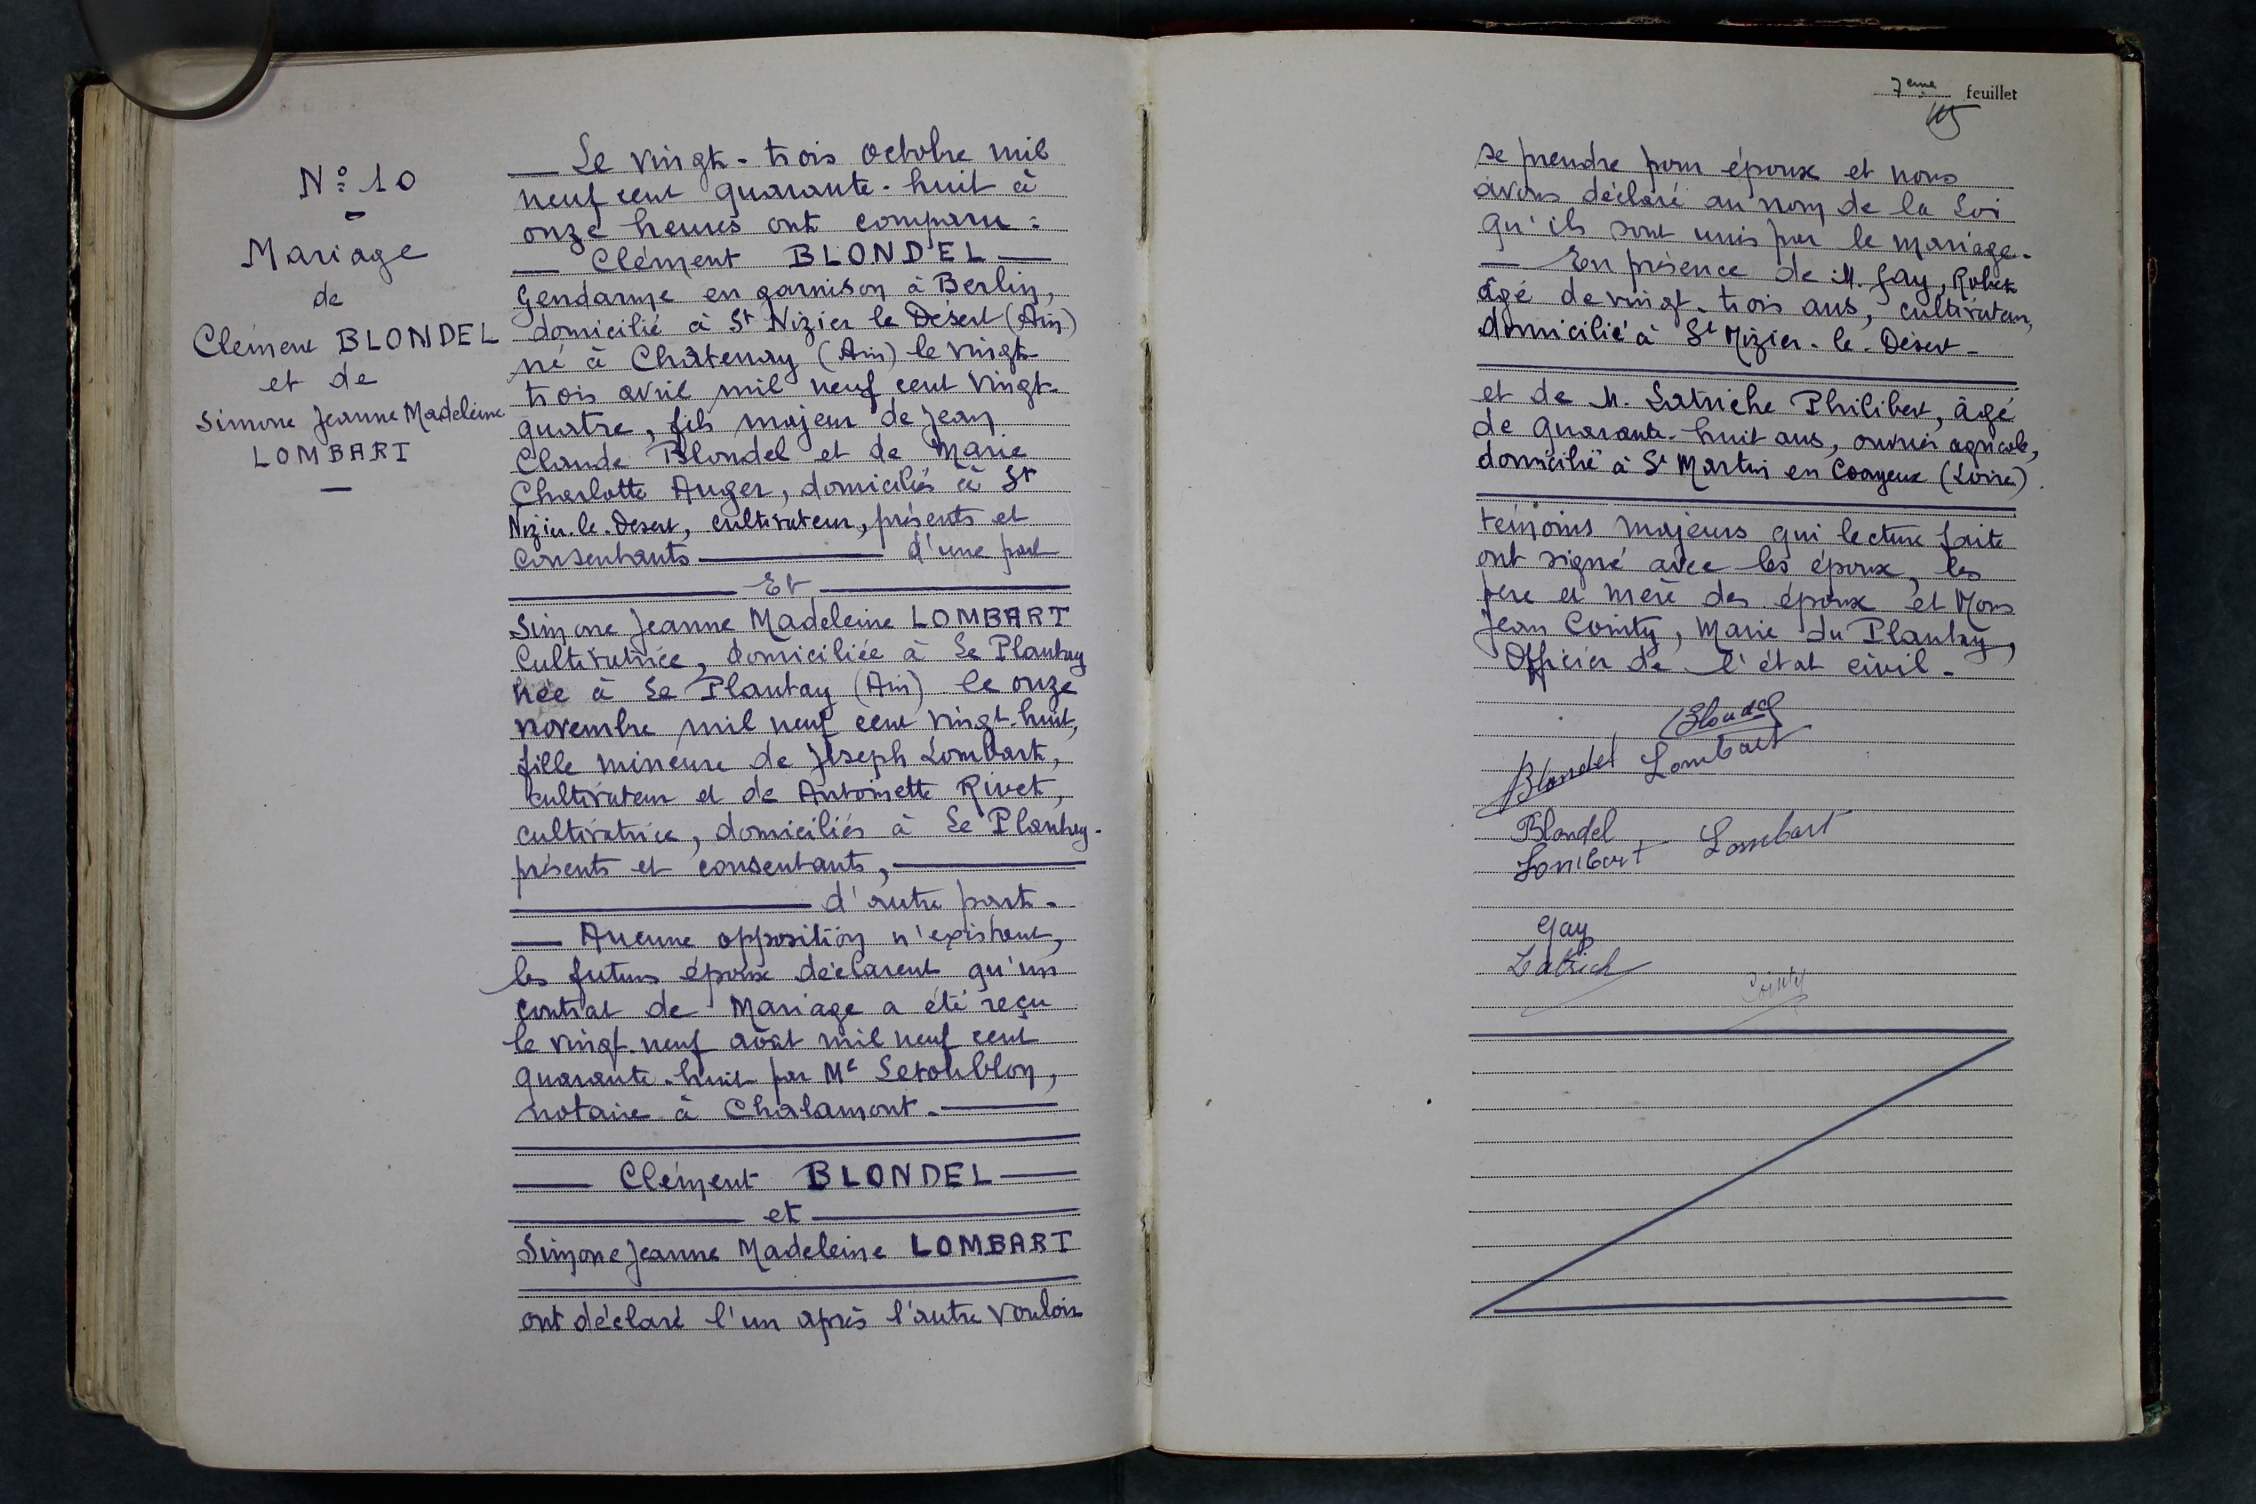 N° 10
Mariage
de
Clément BLONDEL
et de
Simone Jeanne Madeleine
LOMBART
Le vingt-trois octobre mil
neuf cent quarante-huit à
onze heures ont comparu :
Clément BLONDEL
Gendarme en garnison à Berlin,
domicilié à St Nizier le Désert (Ain)
né à Châtenay (Ain) le vingt-
trois avril mil neuf cent vingt-
quatre, fils majeur de Jean
Claude Blondel et de Marie
Charlotte Auger, domiciliés à St
Nizier-le-Désert, cultivateur, présents et
consentants d'une part
Et
Simone Jeanne Madeleine LOMBART
Cultivatrice, domiciliée à Le Plantay
née à Le Plantay (Ain) le onze
novembre mil neuf cent vingt-huit,
fille mineure de Joseph Lombart,
cultivateur et de Antoinette Rivet,
cultivatrice, domiciliés à Le Plantay-
présents et consentants,
d'autre part.
Aucune opposition n'existant,
les futurs époux déclarent qu'un
contrat de Mariage a été reçu
le vingt-neuf août mil neuf cent
quarante-huit par Me Letoublon,
notaire à Chalamont.
Clément BLONDEL
et
Simone Jeanne Madeleine LOMBART
ont déclaré l'un après l'autre vouloir
7eme feuillet
se prendre pour époux et nous
avons déclaré au nom de la Loi
qu'ils sont unis par le mariage.
En présence de M. Gay, Robert
âgé de vingt-trois ans, cultivateur,
domicilié à St Nizier-le-Désert-
et de M. Latriche Philibert, âgé
de quarante-huit ans, ouvrier agricole,
domicilié à St Martin en Coayeux (Loire).
témoins majeurs qui lecture faite
ont signé avec les époux, les
père et mère des époux et Nous
Jean Cointy, Maire du Plantay,
Officier de l'état civil.
Blondel
Blondel Lombart
Blondel
Lombart Lombart
Gay
Latrich
Cointy